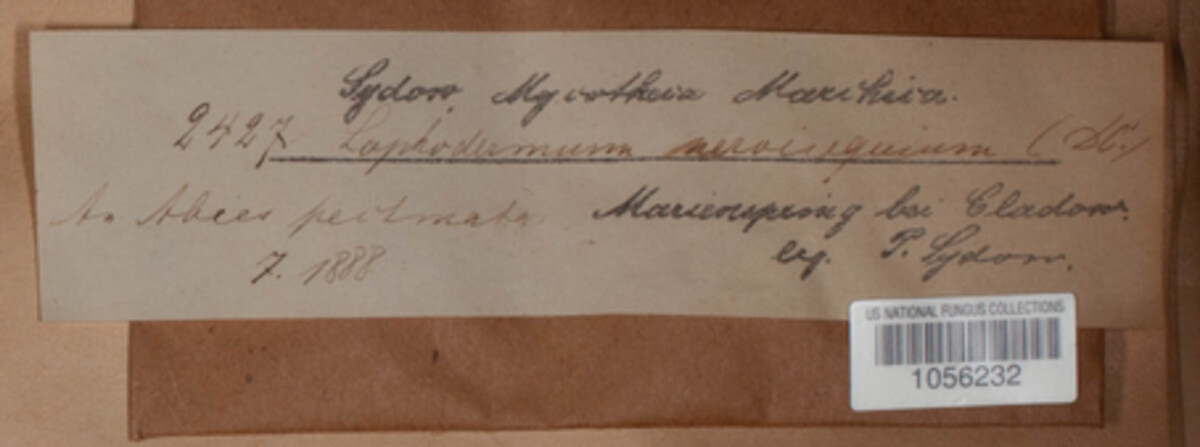 Sydow, Mycotheca Marchica.
2427 Lophodermium nervisequium (DC.)
An Abies pectinata Marienspring bei Cladow.
7. 1888 leg. P. Sydow.
US NATIONAL FUNGUS COLLECTIONS
1056232